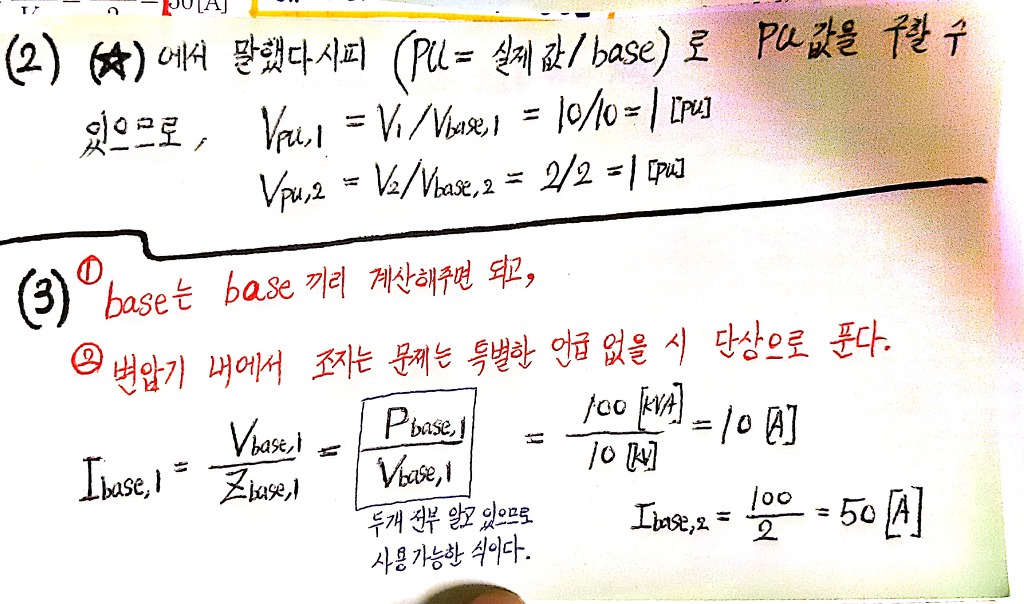 50[A]
(2) (★)에서 말했다시피 (PU = 실제값/base)로 PU값을 구할 수
있으므로, Vpu,1 = V1/Vbase,1 = 10/10 = 1 [pu]
Vpu,2 = V2/Vbase,2 = 2/2 = 1 [pu]
(3) ① base는 base끼리 계산해주면 되고,
② 변압기 내에서 조자는 문제는 특별한 언급 없을 시 단상으로 푼다.
Ibase,1 = Vbase,1/Zbase,1 = Pbase,1/Vbase,1 = 100 [kVA]/10 [kV] = 10 [A]
두개 전부 알고 있으므로
사용가능한 식이다.
Ibase,2 = 100/2 = 50 [A]